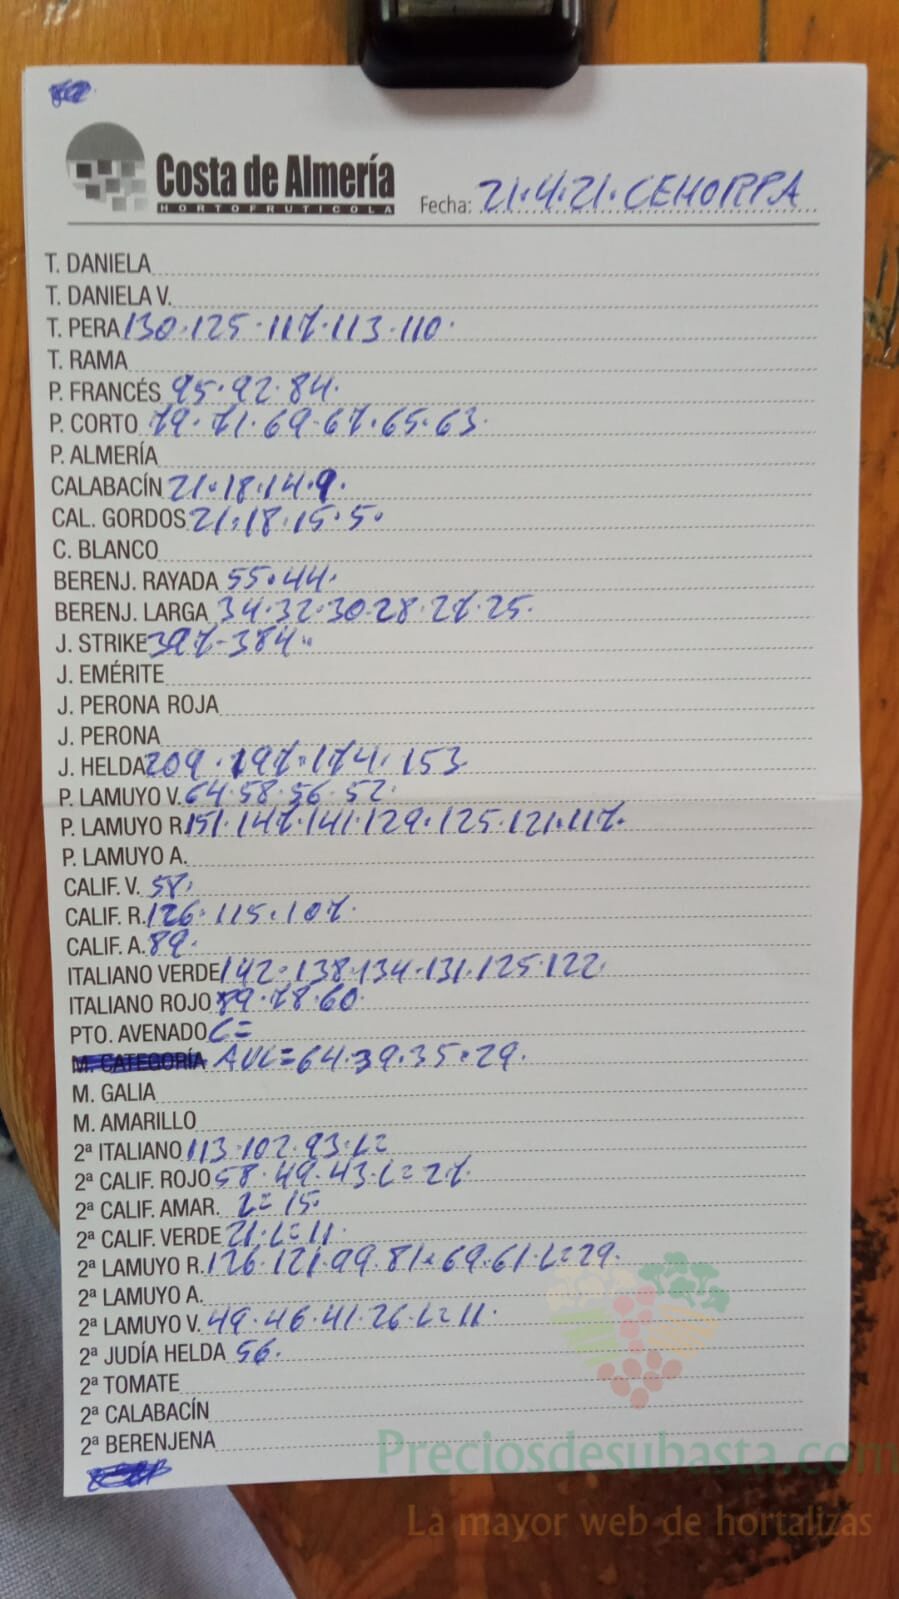 Costa de Almería
HORTOFRUTICOLA
Fecha: 21.4.21. CEHORPA
T. DANIELA
T. DANIELA V.
T. PERA 130.125.117.113.110.
T. RAMA
P. FRANCÉS 95.92.84.
P. CORTO 79.71.69.67.65.63.
P. ALMERÍA
CALABACÍN 21.18.14.9.
CAL. GORDOS 21.18.15.5.
C. BLANCO
BERENJ. RAYADA 55.44.
BERENJ. LARGA 34.32.30.28.27.25.
J. STRIKE 397-384.
J. EMÉRITE
J. PERONA ROJA
J. PERONA
J. HELDA 209.197.174.153
P. LAMUYO V. 64.58.56.52.
P. LAMUYO R. 151.147.141.129.125.121.117.
P. LAMUYO A.
CALIF. V.
CALIF. R. 126.115.107.
CALIF. A. 89.
ITALIANO VERDE 142.138.134.131.125.122.
ITALIANO ROJO 89.78.60.
PTO. AVENADO C=
M. CATEGORÍA AVL=64.39.35.29.
M. GALIA
M. AMARILLO
2ª ITALIANO 113.102.93.L=
2ª CALIF. ROJO 58.49.43.L=27.
2ª CALIF. AMAR. L=15.
2ª CALIF. VERDE 21.L=11.
2ª LAMUYO R. 126.121.99.81.69.61.L=29.
2ª LAMUYO A.
2ª LAMUYO V. 49.46.41.26.L=11.
2ª JUDÍA HELDA 56.
2ª TOMATE
2ª CALABACÍN
2ª BERENJENA
Preciosdesubasta.com
La mayor web de hortalizas